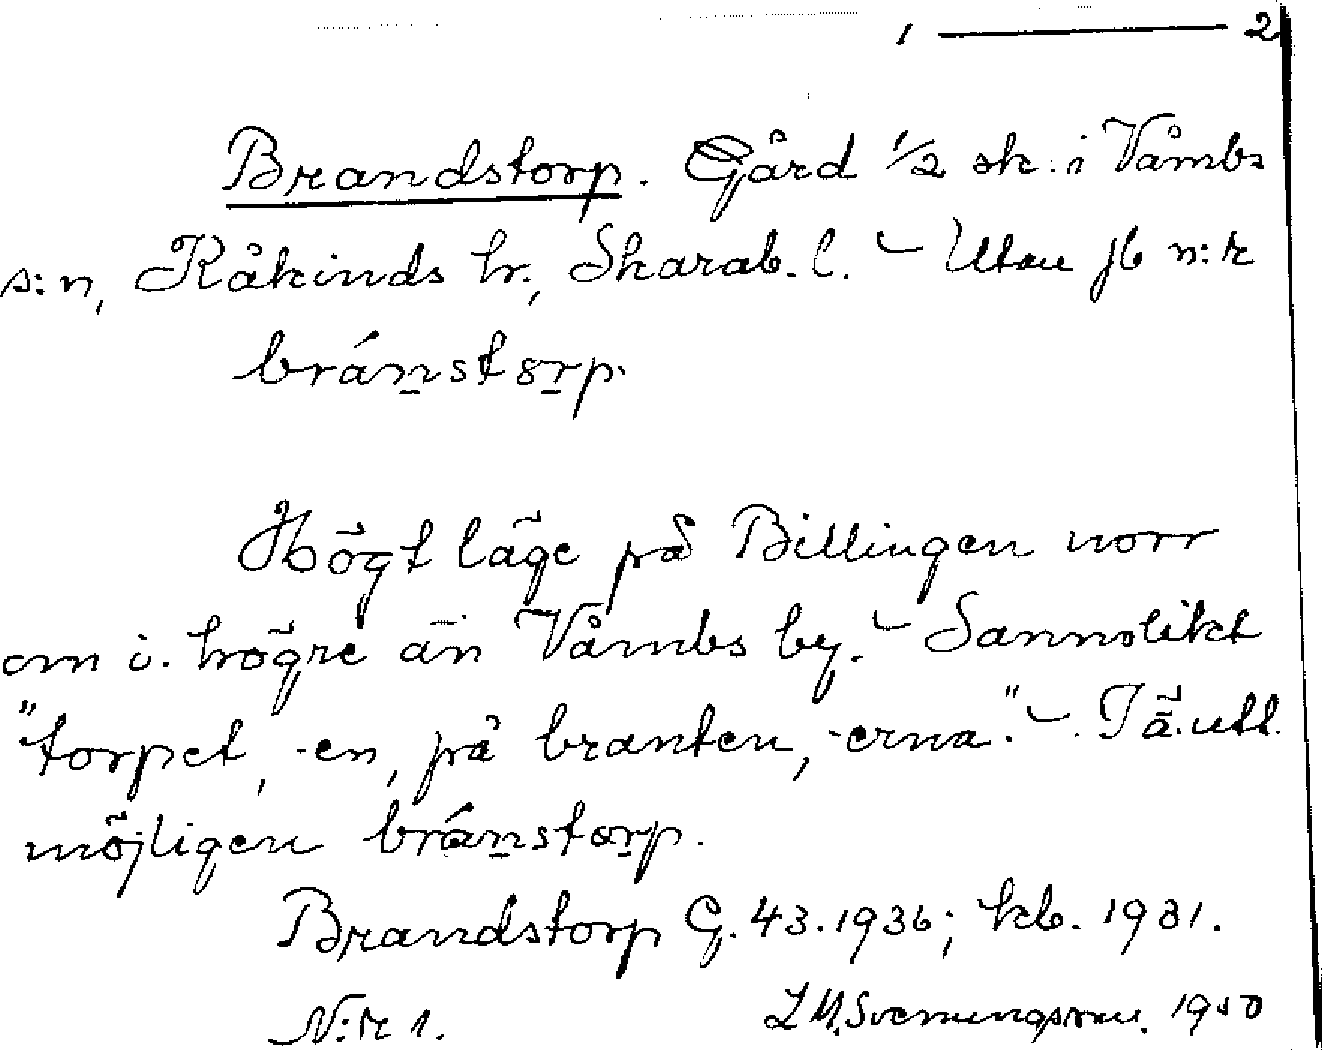 1 ——— 2
Brandstorp. Gård 1/2 sk. i Våmbs
s:n, Kåkinds hr., Skarab. l. – Utan jb n:r
bránstorp.
Högt läge på Billingen norr
om o. högre än Våmbs by. – Sannolikt
"torpet, -en, på branten, -erna." – Tä. utt.
möjligen bránstorp.
Brandstorp G. 43. 1936; kb. 1931.
N:r 1.